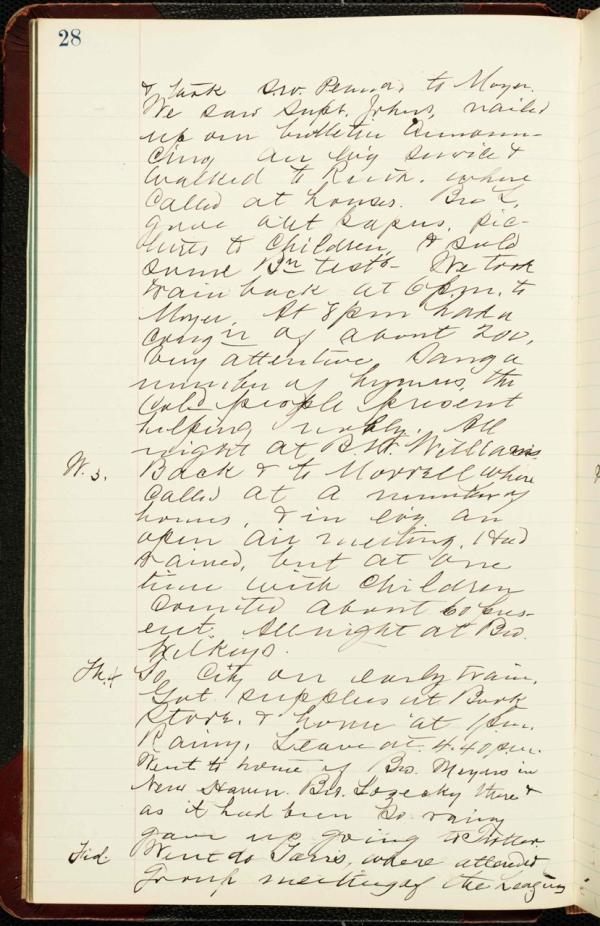 28
& took S.W. Penna to Moyer.
We saw Supt. Johns, nailed
up our bulletin announ-
cing an evg service &
walked to Ruth. where
called at houses. Bro L.
gave out papers, pic-
tures to children, & sold
some Bn testts. We took
train back at 6 p.m. to
Moyer. At 8 pm had a
congn of about 200,
very attentive. Sang a
number of hymns, the
cold people present
helping nobly. All
night at B. W. Williams
W. 3. Back & to Morrell where
called at a number of
homes, & in evg an
open air meeting. Had
rained, but at one
time with children
counted about 60 pres-
ent. All night at Bro.
Wilkins.
Th. 4 To City on early train.
Got supplies at Book
Store, & home at 1 pm.
Rainy. Leave at 4.40 p.m.
Went to home of Bro. Meyers in
New Haven. Bro. Lozecky there &
as it had been so rainy
gave up going to
Frid. Went to where attended
Group meeting of the Leagues